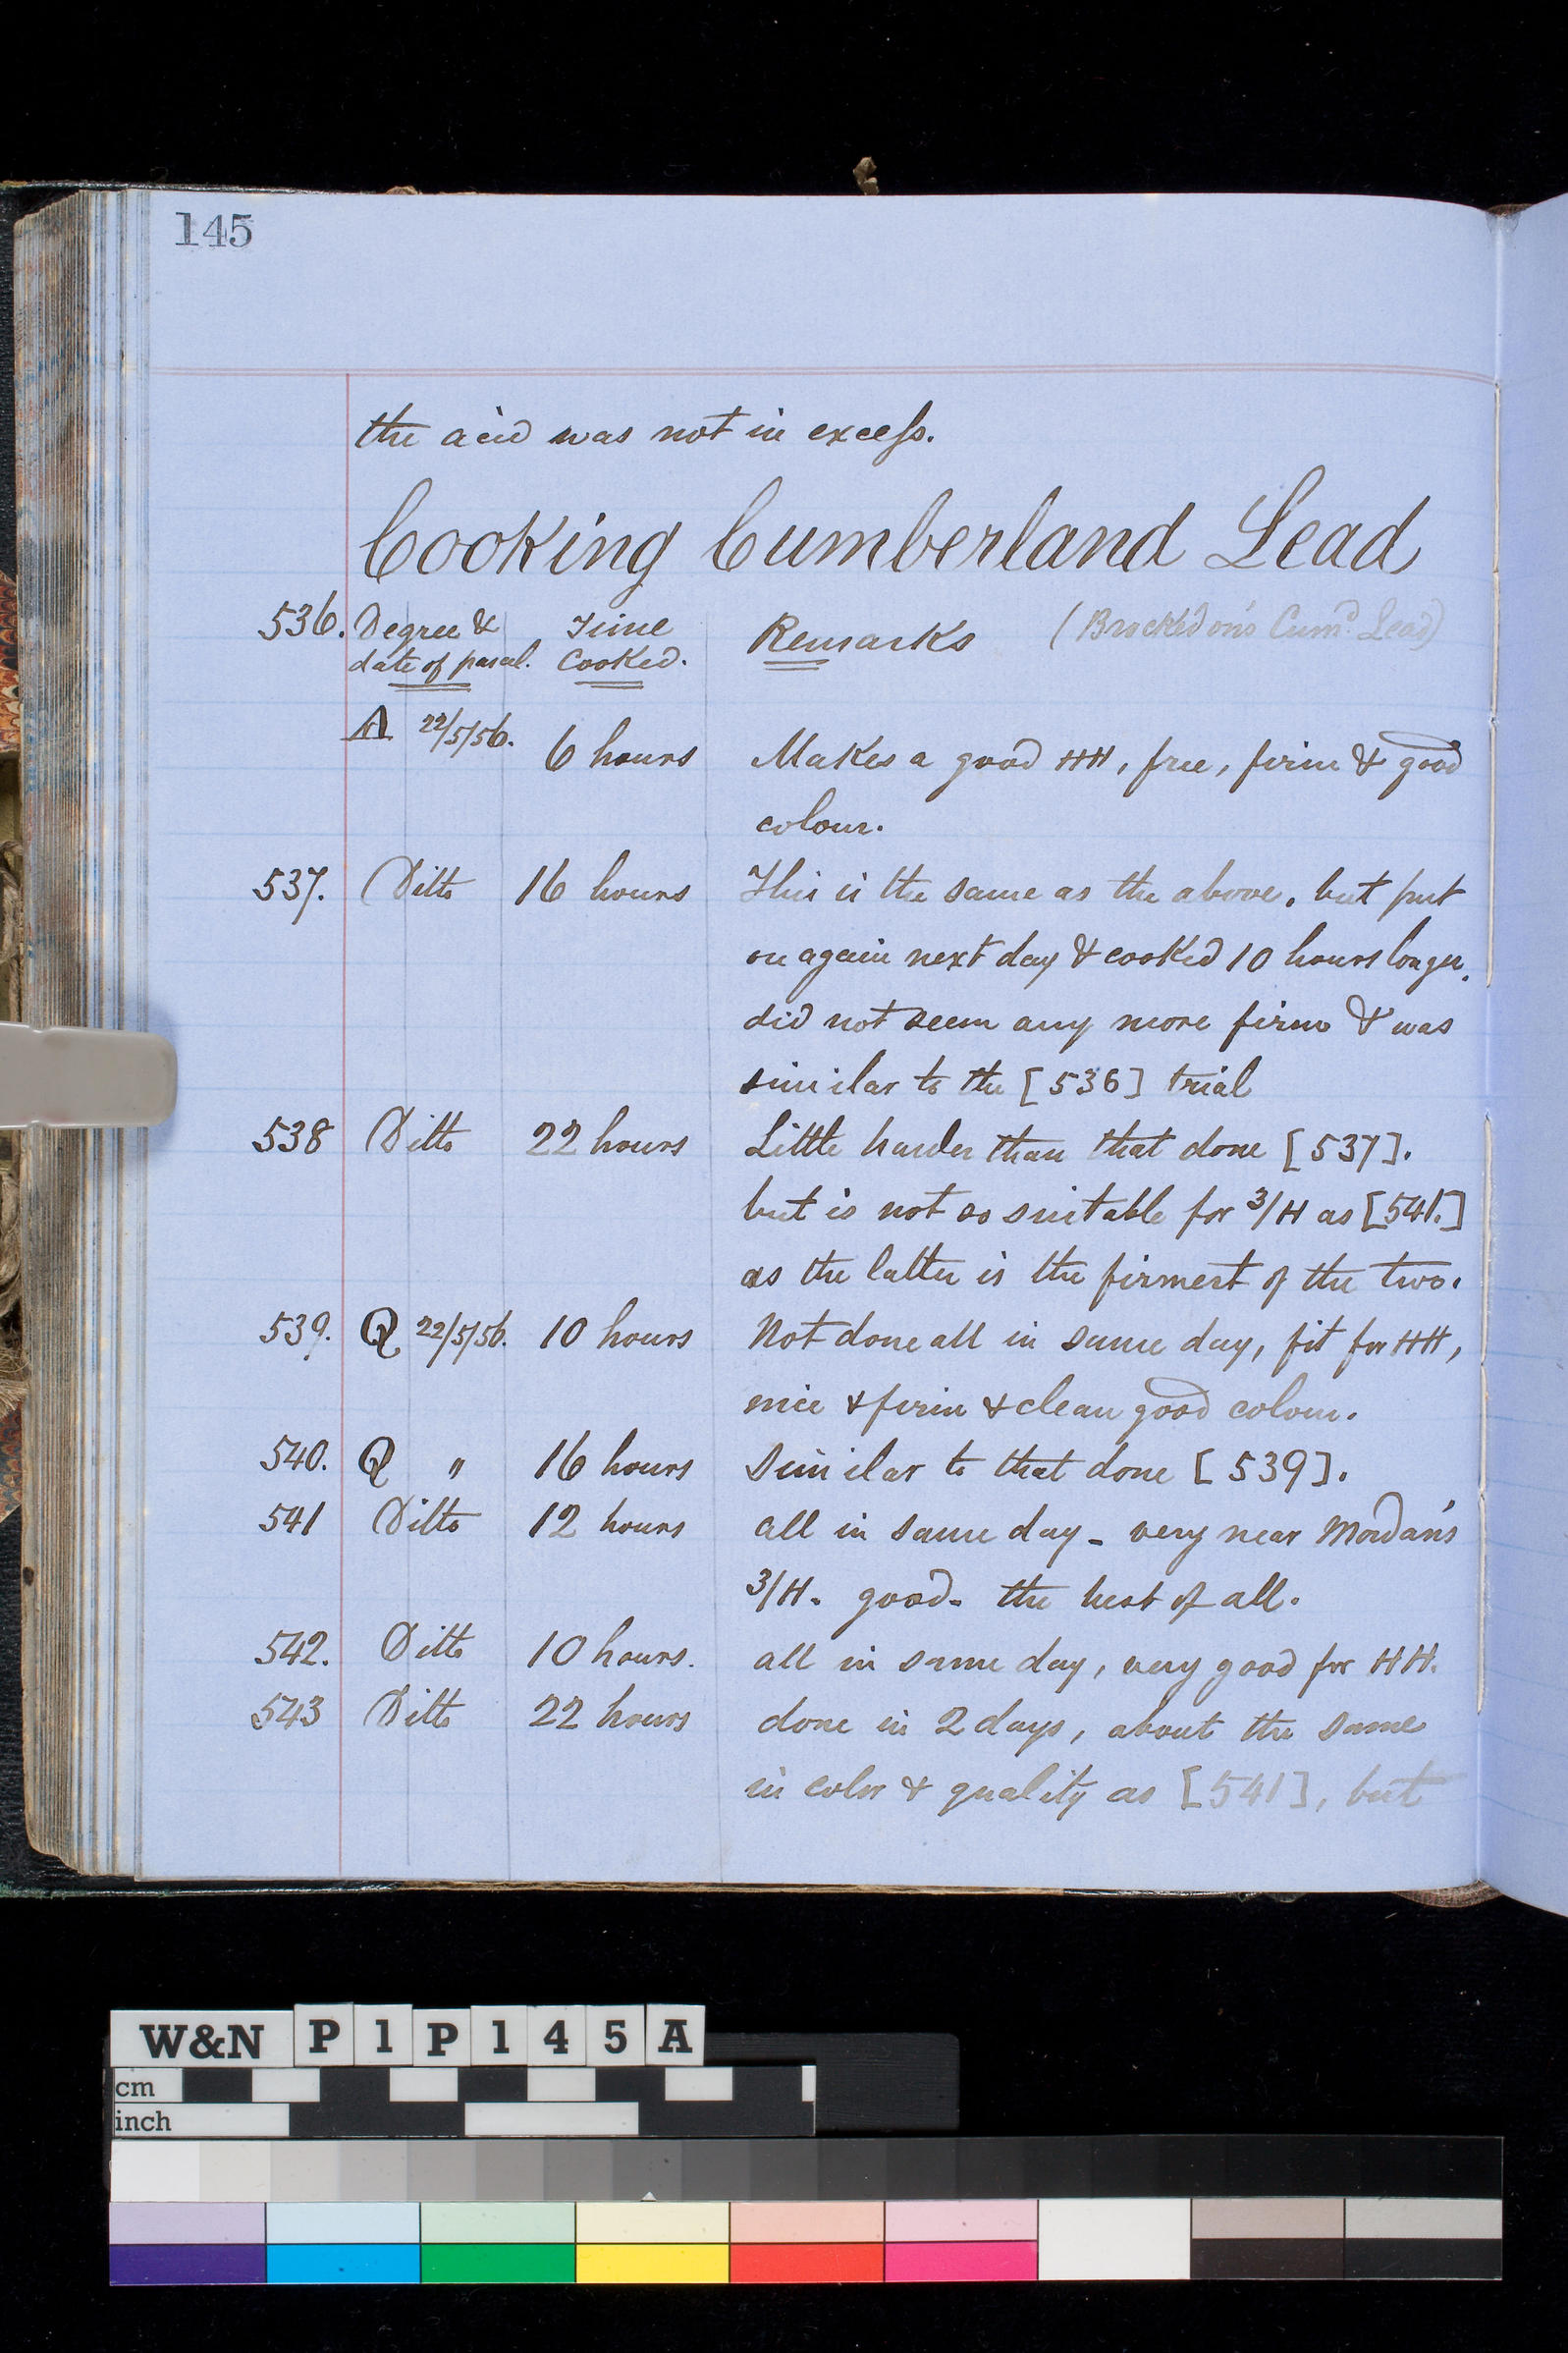 145
the acid was not in excess.
Cooking Cumberland Lead
536. Degree & Time Remarks (Brockedon's Cumd. Lead)
date of parcel. Cooked.
A 22/5/56. 6 hours Makes a good HH, free, firm & good
colour.
537. Ditto 16 hours This is the same as the above, but put
on again next day & cooked 10 hours longer,
did not seem any more firm & was
similar to the [536] trial
538 Ditto 22 hours Little harder than that done [537].
but is not so suitable for 3/H as [541.]
as the latter is the firmest of the two.
539. Q 22/5/56. 10 hours Not done all in same day, fit for HH,
nice & firm & clean good colour.
540. Q " 16 hours Similar to that done [539].
541 Ditto 12 hours all in same day - very near Mordan's
3/H. good - the best of all.
542. Ditto 10 hours. all in same day, very good for HH.
543 Ditto 22 hours done in 2 days, about the same
in color & quality as [541], but
W&N P1P145A
cm
inch